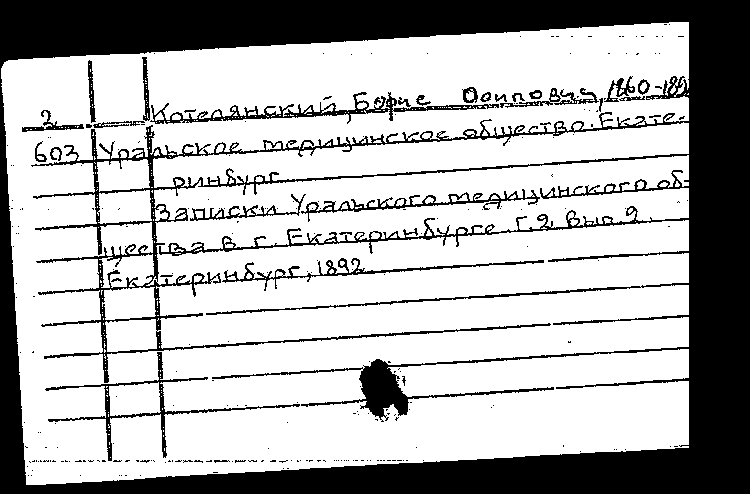 2 Котелянский, Борис Осипович, 1860-189
603 Уральское медицинское общество. Екате-
ринбург
Записки Уральского медицинского об-
щества в г. Екатеринбурге. Г.2. Вып. 2.
Екатеринбург, 1892